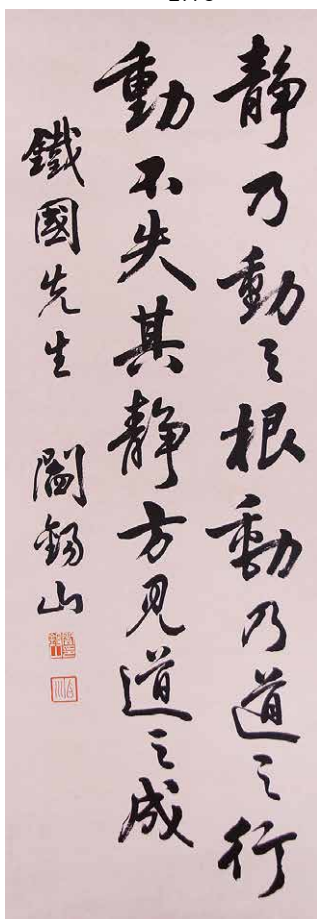 靜乃動之根動乃道之行
動不失其靜方見道之成
鐵國先生 閻錫山